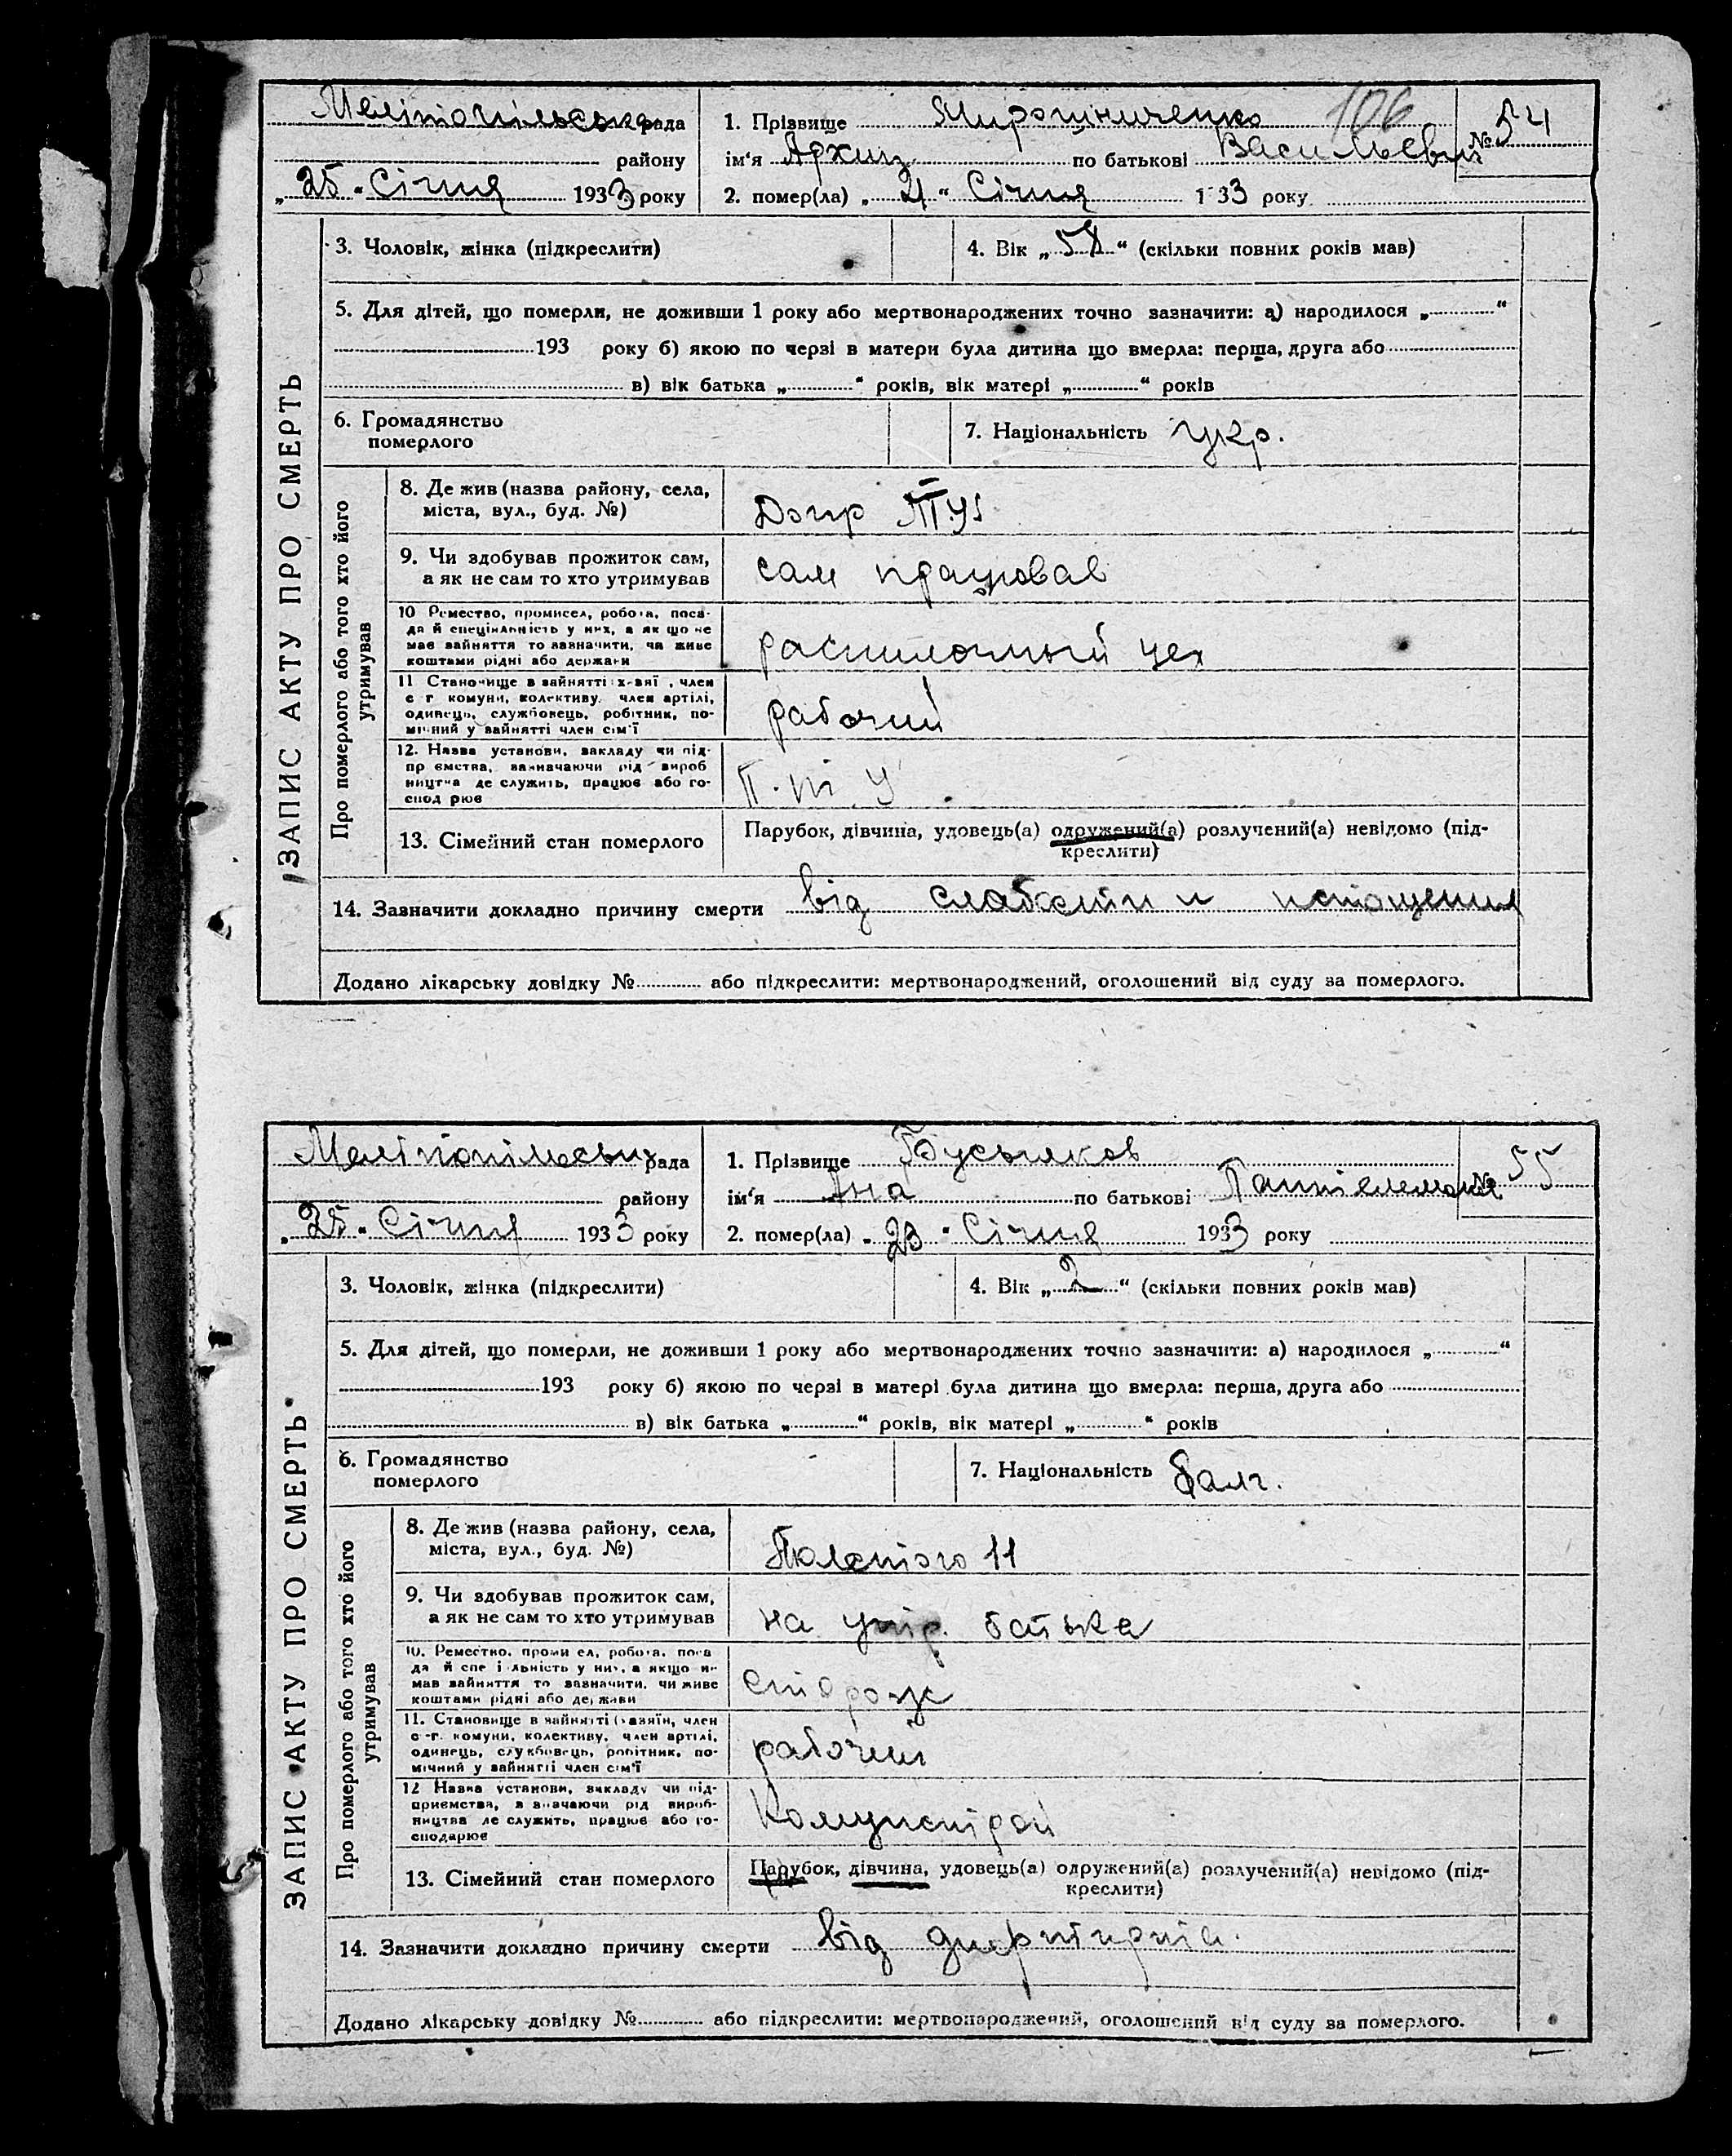 106
Мелітопільська рада
району
„25“ Січня 1933 року
1. Прізвище Мирошниченко
№ 54
ім‘я Архип по батькові Васильевич
2. помер(ла) „21“ Січня 1933 року
ЗАПИС АКТУ ПРО СМЕРТЬ
3. Чоловік, жінка (підкреслити)
4. Вік „58“ (скільки повних років мав)
5. Для дітей, що померли, не доживши 1 року або мертвонароджених точно зазначити: а) народилося „ “
193 року б) якою по черзі в матери була дитина що вмерла: перша, друга або
в) вік батька „ “ років, вік матері „ “ років
6. Громадянство
померлого
7. Національність укр.
Про померлого або того хто його
утримував
8. Де жив (назва району, села,
міста, вул., буд. №)
Допр
9. Чи здобував прожиток сам,
а як не сам то хто утримував
сам працював
10 Ремество, промисел, робота, поса-
да й спеціяльність у них, а як що не
має зайняття то зазначити, чи живе
коштами рідні або держави
распилочный цех
11 Становище в зайнятті х-зяї , член
с г. комуни, колективу, член артілі,
одинець, службовець, робітник, по-
мічний у зайнятті член сім‘ї
рабочий
12. Назва установи, закладу чи під-
пр ємства, зазначаючи рід вироб
ництва де служить, працює або го-
спод рює
П. Т. У
13. Сімейний стан померлого
Парубок, дівчина, удовець(а) одружений(а) розлучений(а) невідомо (під-
креслити)
14. Зазначити докладно причину смерти від слабости и истощения
Додано лікарську довідку № або підкреслити: мертвонароджений, оголошений від суду за померлого.
Мелітопільська рада
району
„25“ Січня 1933 року
1. Прізвище Бусьяков
№ 55
ім‘я Ана по батькові
2. помер(ла) „23“ Січня 1933 року
ЗАПИС АКТУ ПРО СМЕРТЬ
3. Чоловік, жінка (підкреслити)
4. Вік „2“ (скільки повних років мав)
5. Для дітей, що померли, не доживши 1 року або мертвонароджених точно зазначити: а) народилося „ “
193 року б) якою по черзі в матері була дитина що вмерла: перша, друга або
в) вік батька „ “ років, вік матері „ “ років
6. Громадянство
померлого
7. Національність балг.
Про померлого або того хто його
утримував
8. Де жив (назва району, села,
міста, вул., буд. №)
Толстого 11
9. Чи здобував прожиток сам,
а як не сам то хто утримував
на утр. батька
10. Ремество, проми ел, робота, поса
да й спе і льність у них, а якщо не
мав зайняття то зазначити, чи живе
коштами рідні або держави
сторож
11. Становище в зайнятті (хазяїн, член
с-г. комуни, колективу, член артілі,
одинець, службовець, робітник, по-
мічний у зайнятті член сім‘ї
рабочий
12 Назва установи, закладу чи під-
приємства, з значаючи рід вироб-
ництва де служить, працює або го-
сподарює
Комунстрой
13. Сімейний стан померлого
Парубок, дівчина, удовець(а) одружений(а) розлучений(а) невідомо (під-
креслити)
14. Зазначити докладно причину смерти від дифтирита.
Додано лікарську довідку № або підкреслити: мертвонароджений, оголошений від суду за померлого.